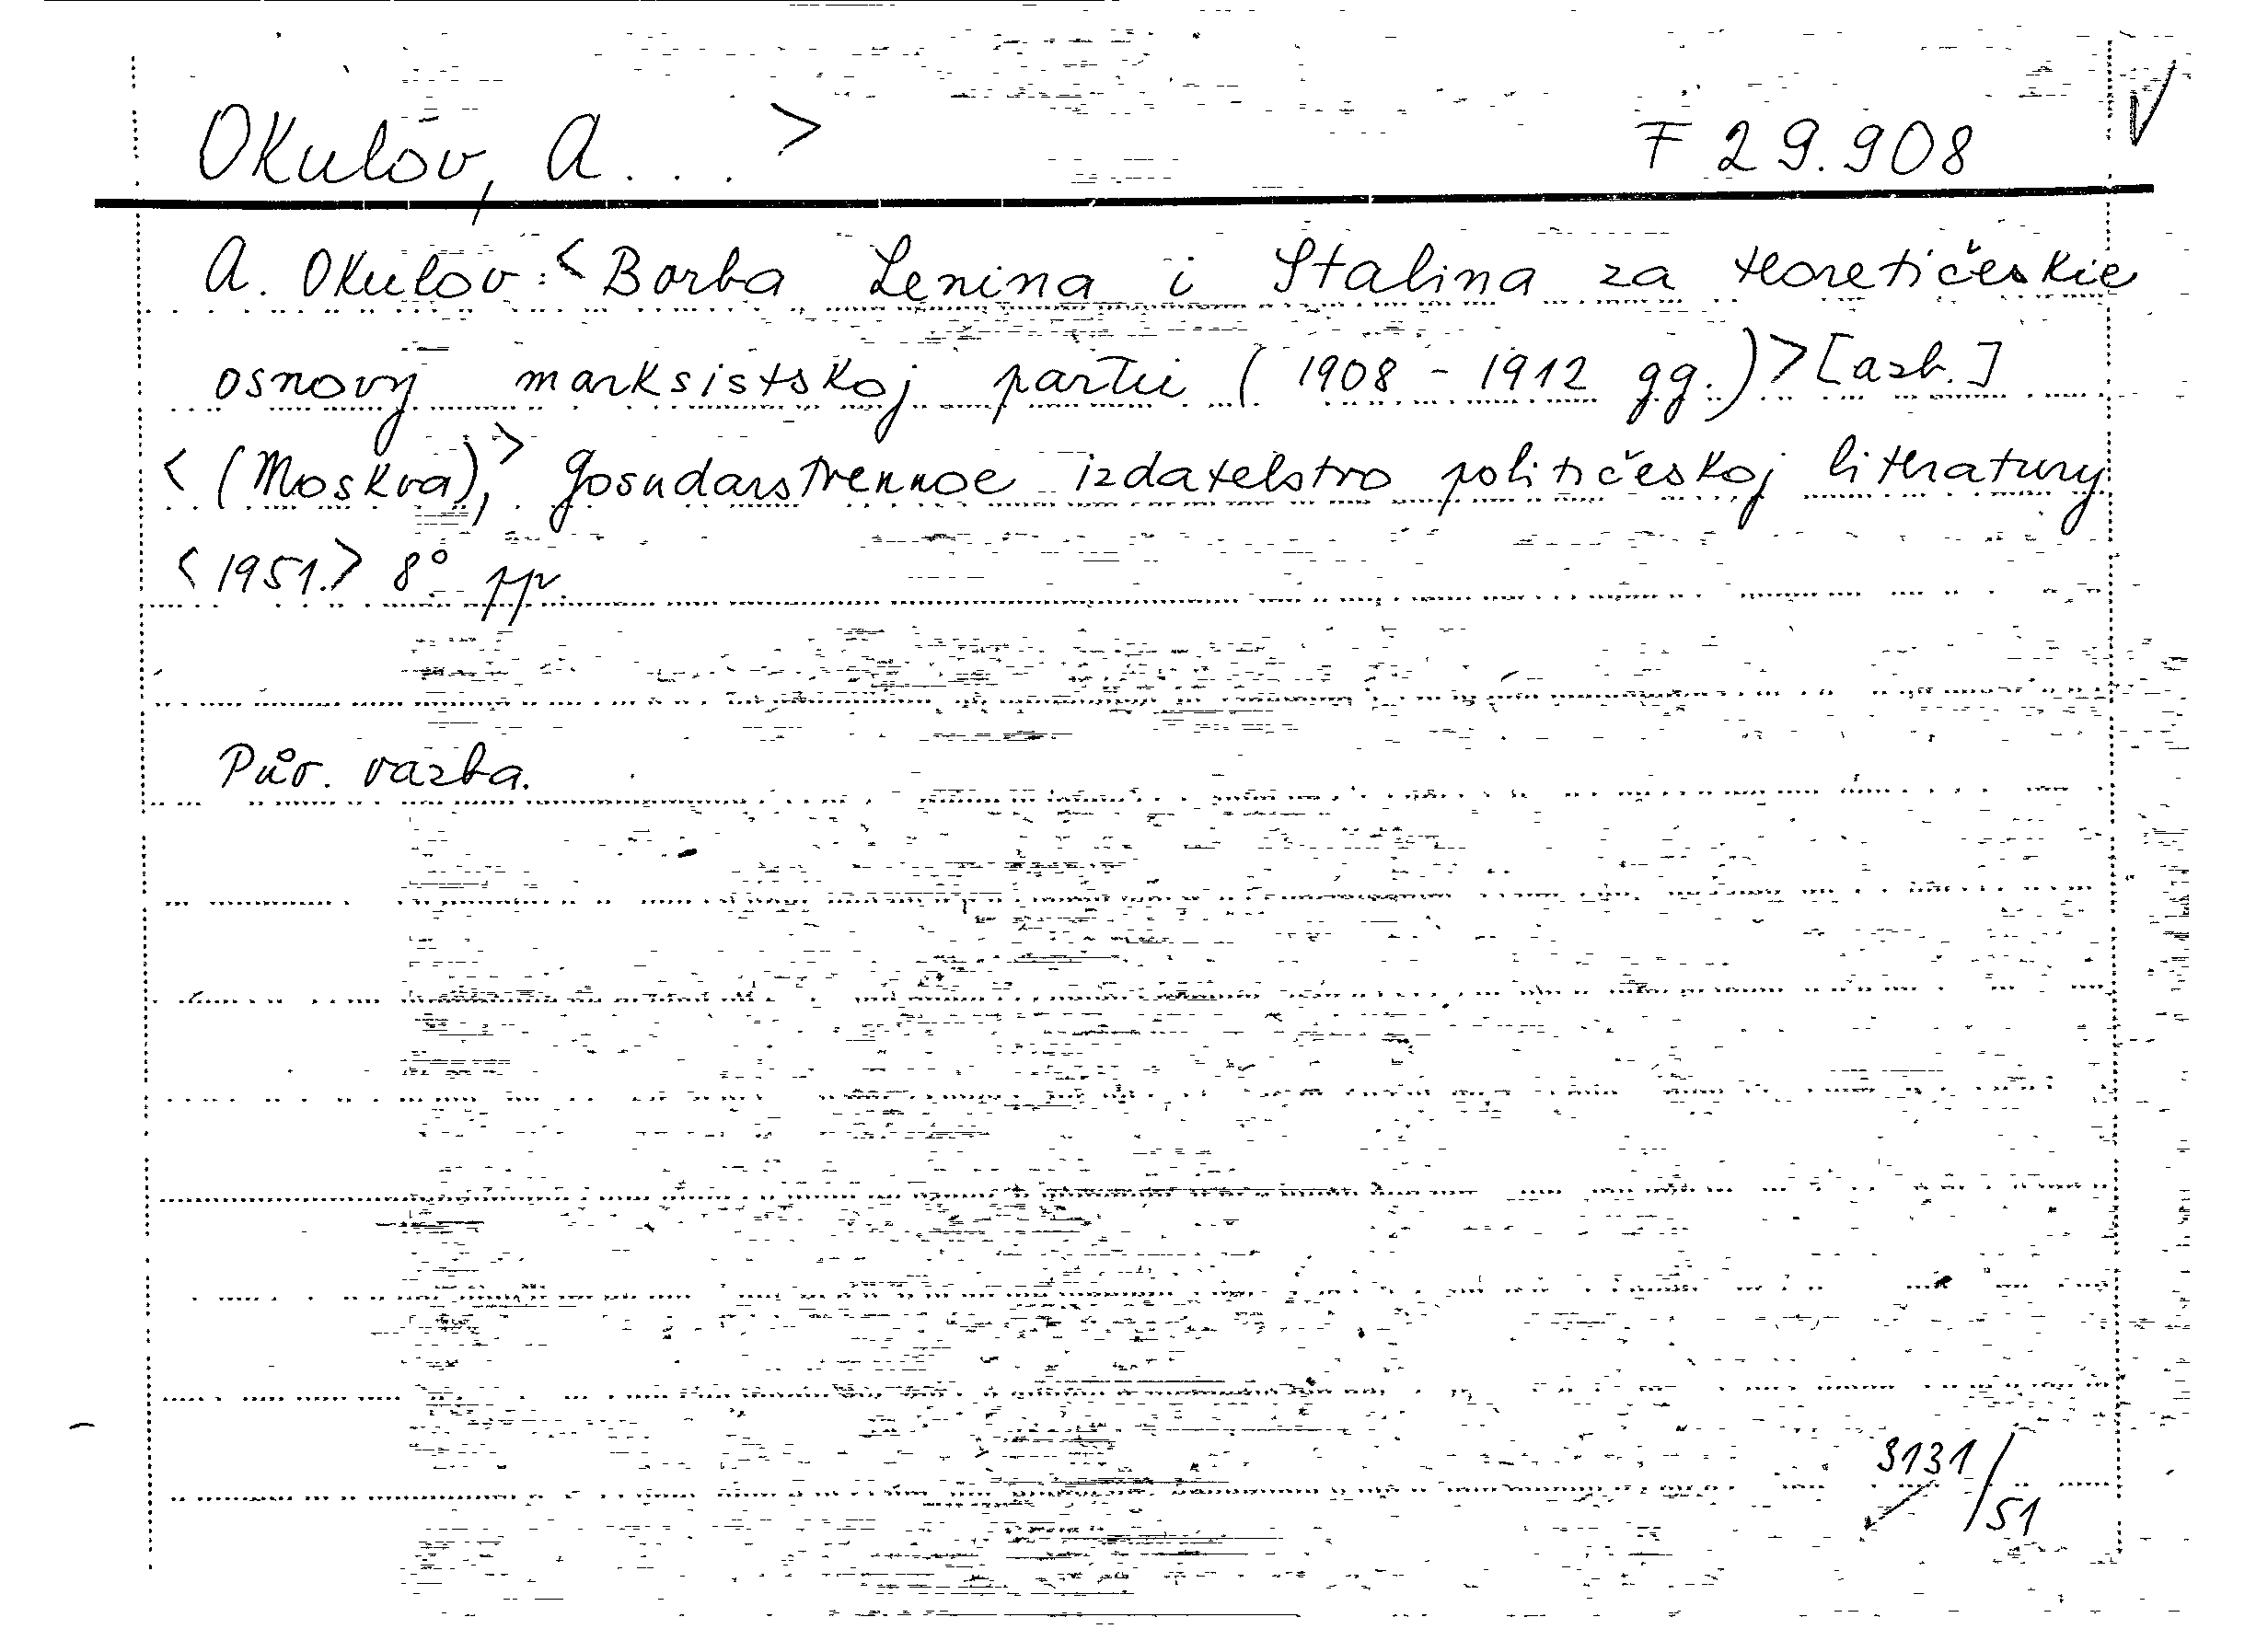 Okulov, A... > F 29.908
A. Okulov: <Borba Lenina i Stalina za teoretičeskie
osnovy marksistskoj partii (1908-1912 gg.)> [azb.]
<(Moskva),> Gosudarstvennoe izdatelstvo političeskoj literatury
<1951.> 8° pp.
Pův. vazba.
3131/51